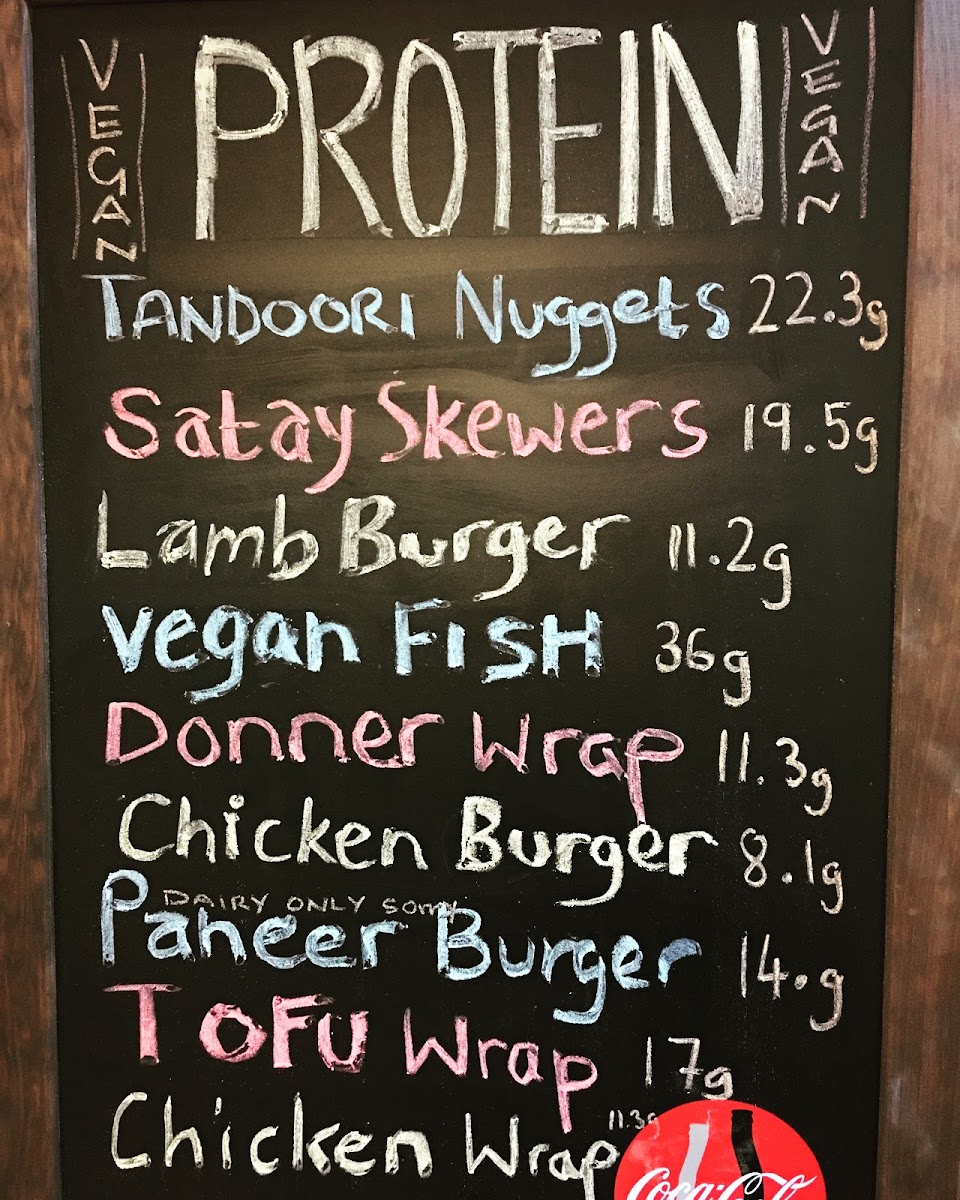 VEGAN PROTEIN VEGAN
TANDOORI Nuggets 22.3g
Satay Skewers 19.5g
Lamb Burger 11.2g
vegan FISH 36g
Donner Wrap 11.3g
Chicken Burger 8.1g
DAIRY ONLY sorry
Paneer Burger 14.g
TOFU Wrap 17g
Chicken Wrap 11.3g
Coca-Cola